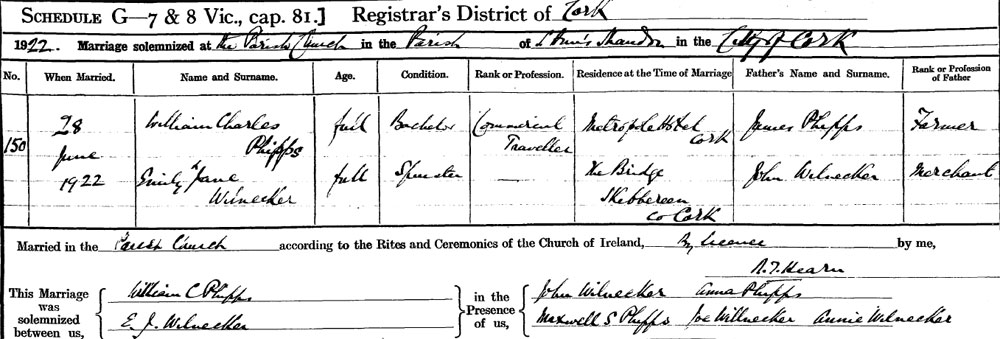 SCHEDULE G—7 & 8 Vic., cap. 81.] Registrar's District of Cork
1922. Marriage solemnized at the Parish Church in the Parish of St Ann's Shandon in the City of Cork
No. When Married. Name and Surname. Age. Condition. Rank or Profession. Residence at the Time of Marriage Father's Name and Surname. Rank or Profession of Father
150 28 June 1922
William Charles Phipps full Bachelor Commercial Traveller Metropole Hotel Cork James Phipps Farmer
Emily Jane Wilnecker full Spinster — The Bridge Skibbereen Co Cork John Wilnecker Merchant
Married in the Parish Church according to the Rites and Ceremonies of the Church of Ireland, By Licence by me,
R.T. Hearn
This Marriage was solemnized between us,
William C Phipps
E. J. Wilnecker
in the Presence of us,
John Wilnecker Anna Phipps
Maxwell S Phipps Joe Willnecker Annie Wilnecker